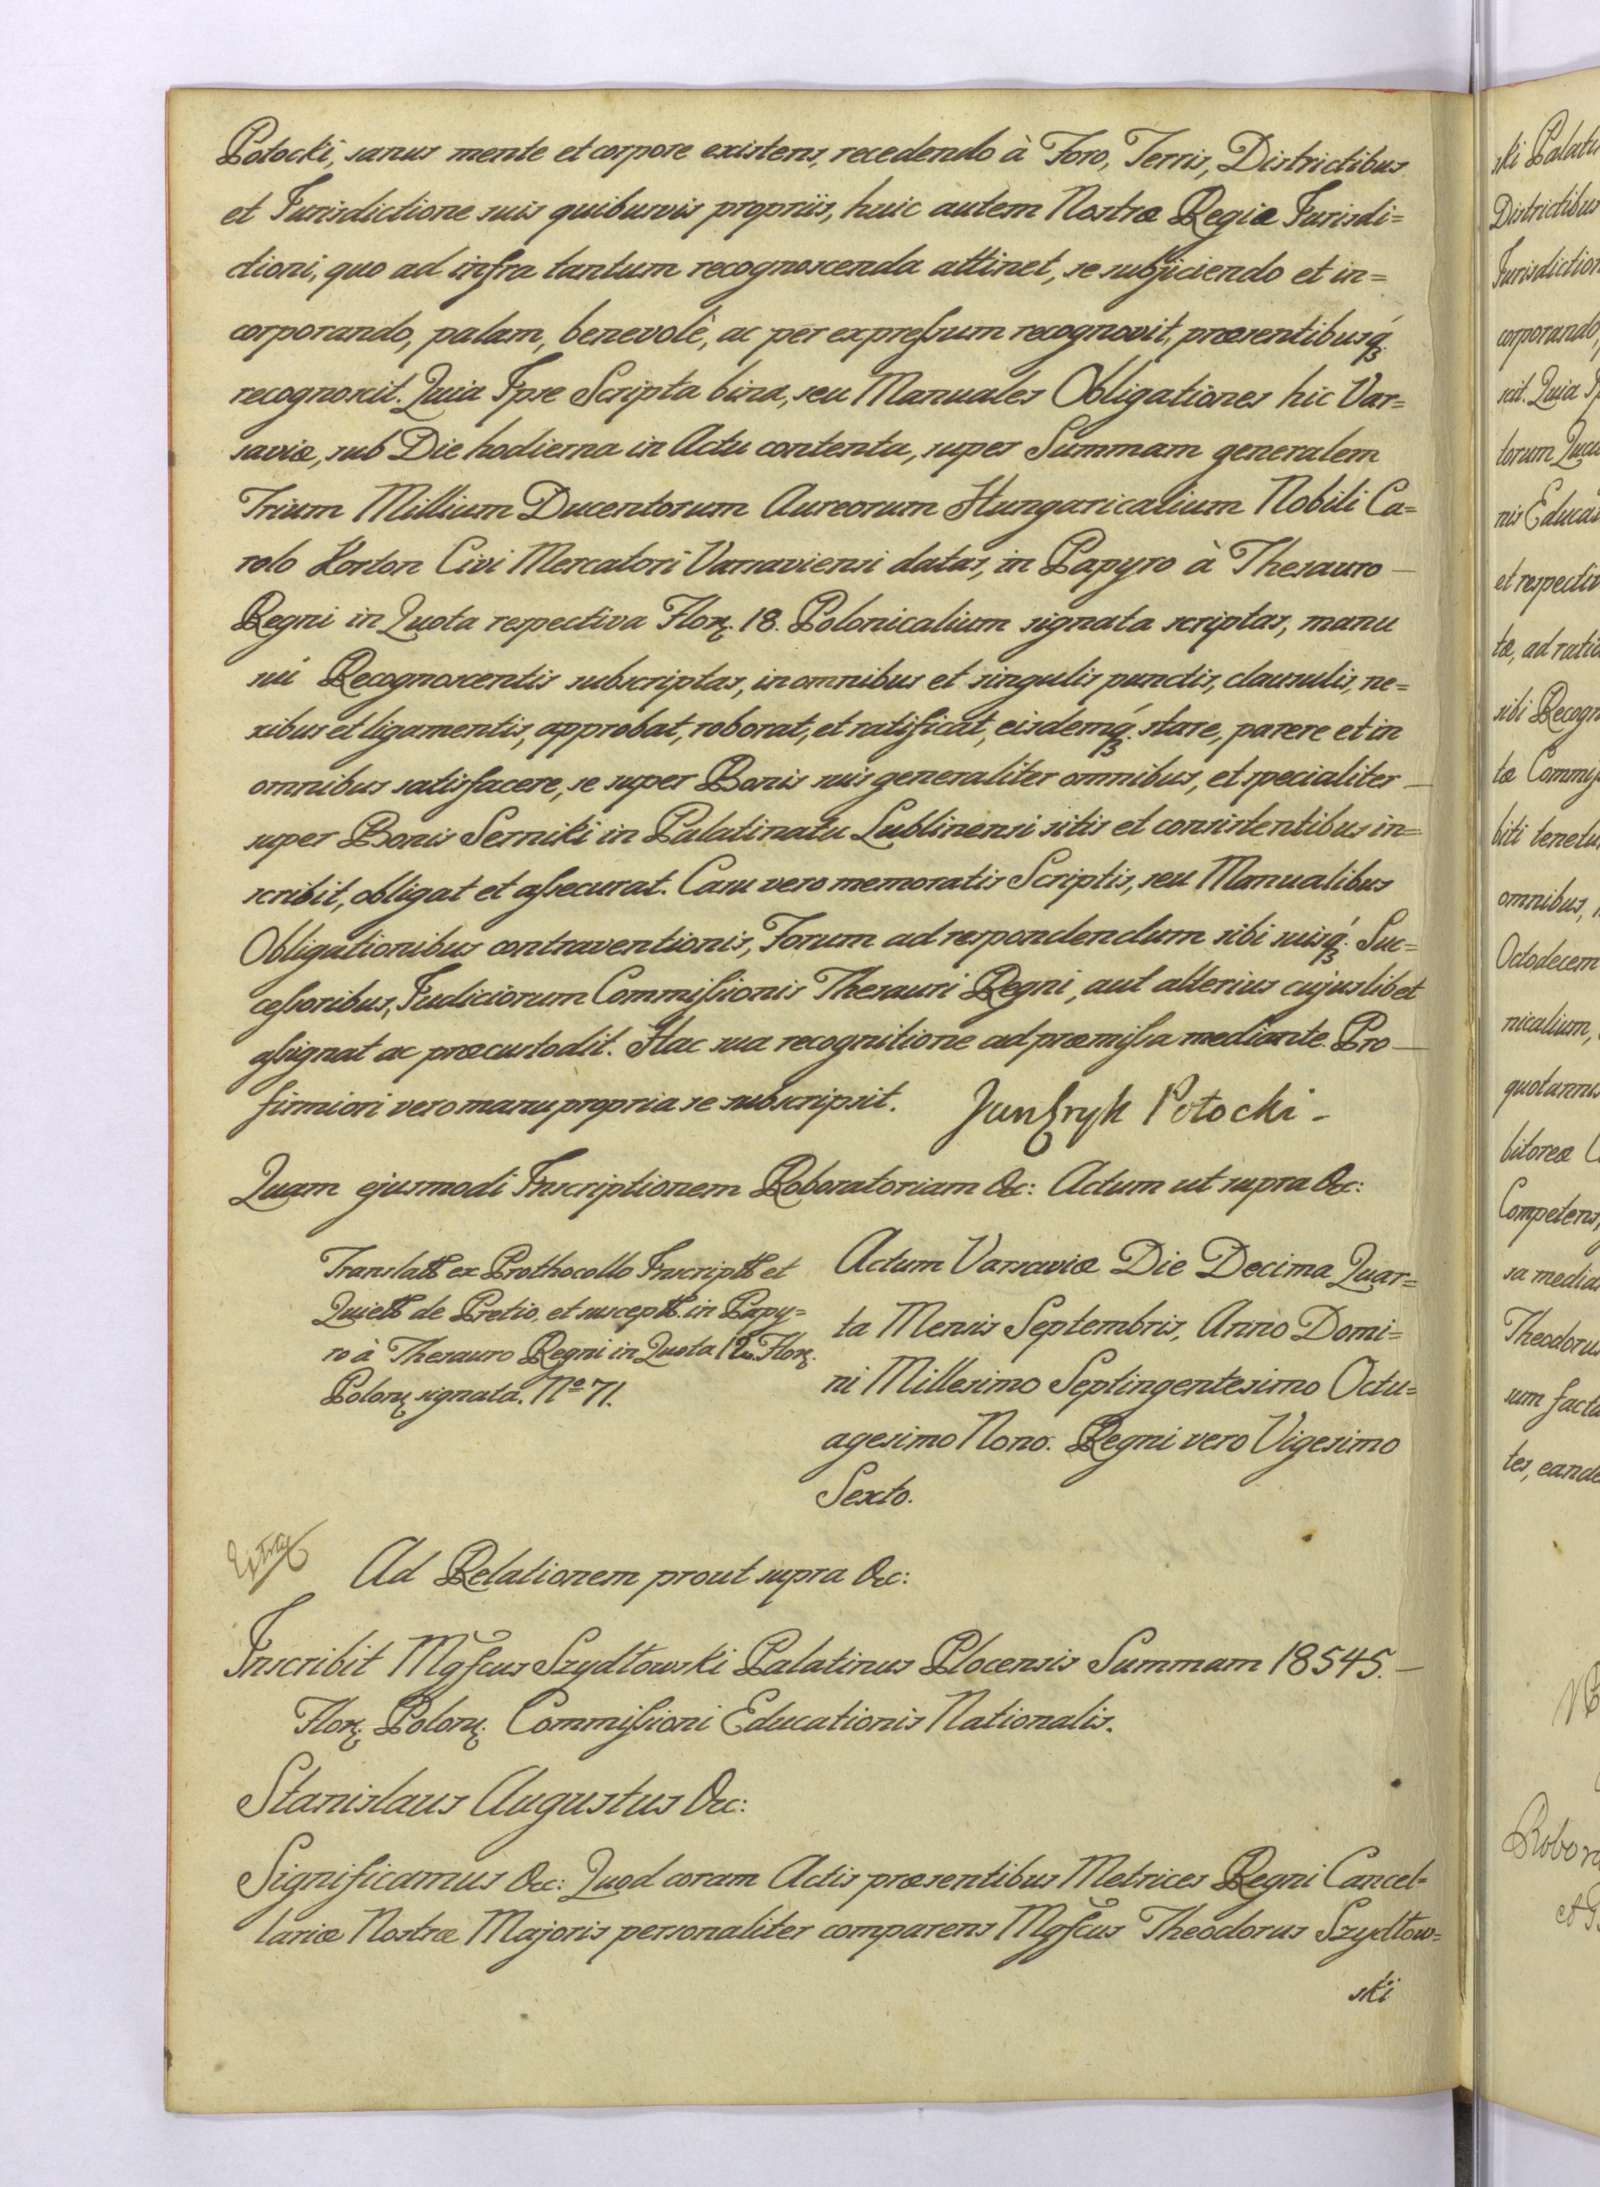 Potocki, sanus mente et corpore existens, recedendo à Foro, Terris, Districtibus
et Jurisdictione suis quibusvis propriis, huic autem Nostræ Regiæ Jurisdi=
ctioni, quo ad infra tantum recognoscenda attinet, se subjiciendo et in=
corporando, palam, benevolè, ac per expressum recognovit, præsentibusq́ʒ
recognoscit. Quia Ipse Scripta bina, seu Manuales Obligationes hic Var=
saviæ, sub Die hodierna in Actu contenta, super Summam generalem
Trium Millium Ducentorum Aureorum Hungaricalium Nobili Ca=
rolo Korton Civi Mercatori Varsaviensi datas, in Papyro à Thesauro —
Regni in Quota respectiva Florꝝ. 18. Polonicalium signata scriptas, manu
sui Recognoscentis subscriptas, in omnibus et singulis punctis, clausulis, ne=
xibus et ligamentis, approbat, roborat, et ratificat, eisdemq́ʒ stare, parere et in
omnibus satisfacere, se super Bonis suis generaliter omnibus, et specialiter —
super Bonis Serniki in Palatinatu Lublinensi sitis et consistentibus in=
scribit, obligat et assecurat. Casu vero memoratis Scriptis, seu Manualibus
Obligationibus contraventionis, Forum ad respondendum sibi suisq́ʒ Suc=
cessoribus, Judiciorum Commissionis Thesauri Regni, aut alterius cujuslibet
assignat ac præcustodit. Hac sua recognitione ad præmissa mediante. Pro —
firmiori vero manu propria se subscripsit. Potocki -
Quam ejusmodi Inscriptionem Roboratoriam &c: Actum ut supra &c:
Translatt ex Prothocollo Inscriptt et
Quiett de Pretio, et susceptt in Papy=
ro à Thesauro Regni in Quota Florꝝ.
Polonꝝ signata. Nº 71.
Actum Varsaviæ Die Decima Quar=
ta Mensis Septembris, Anno Domi=
ni Millesimo Septingentesimo Octu=
agesimo Nono. Regni vero Vigesimo
Sexto.
Ad Relationem prout supra &c:
Inscribit Mgfcus Szydłowski Palatinus Plocensis Summam 18545. —
Florꝝ. Polonꝝ. Commissioni Educationis Nationalis.
Stanislaus Augustus &c:
Significamus &c: Quod coram Actis præsentibus Metrices Regni Cancel=
lariæ Nostræ Majoris personaliter comparens Mgfcus Theodorus Szydłow=
ski